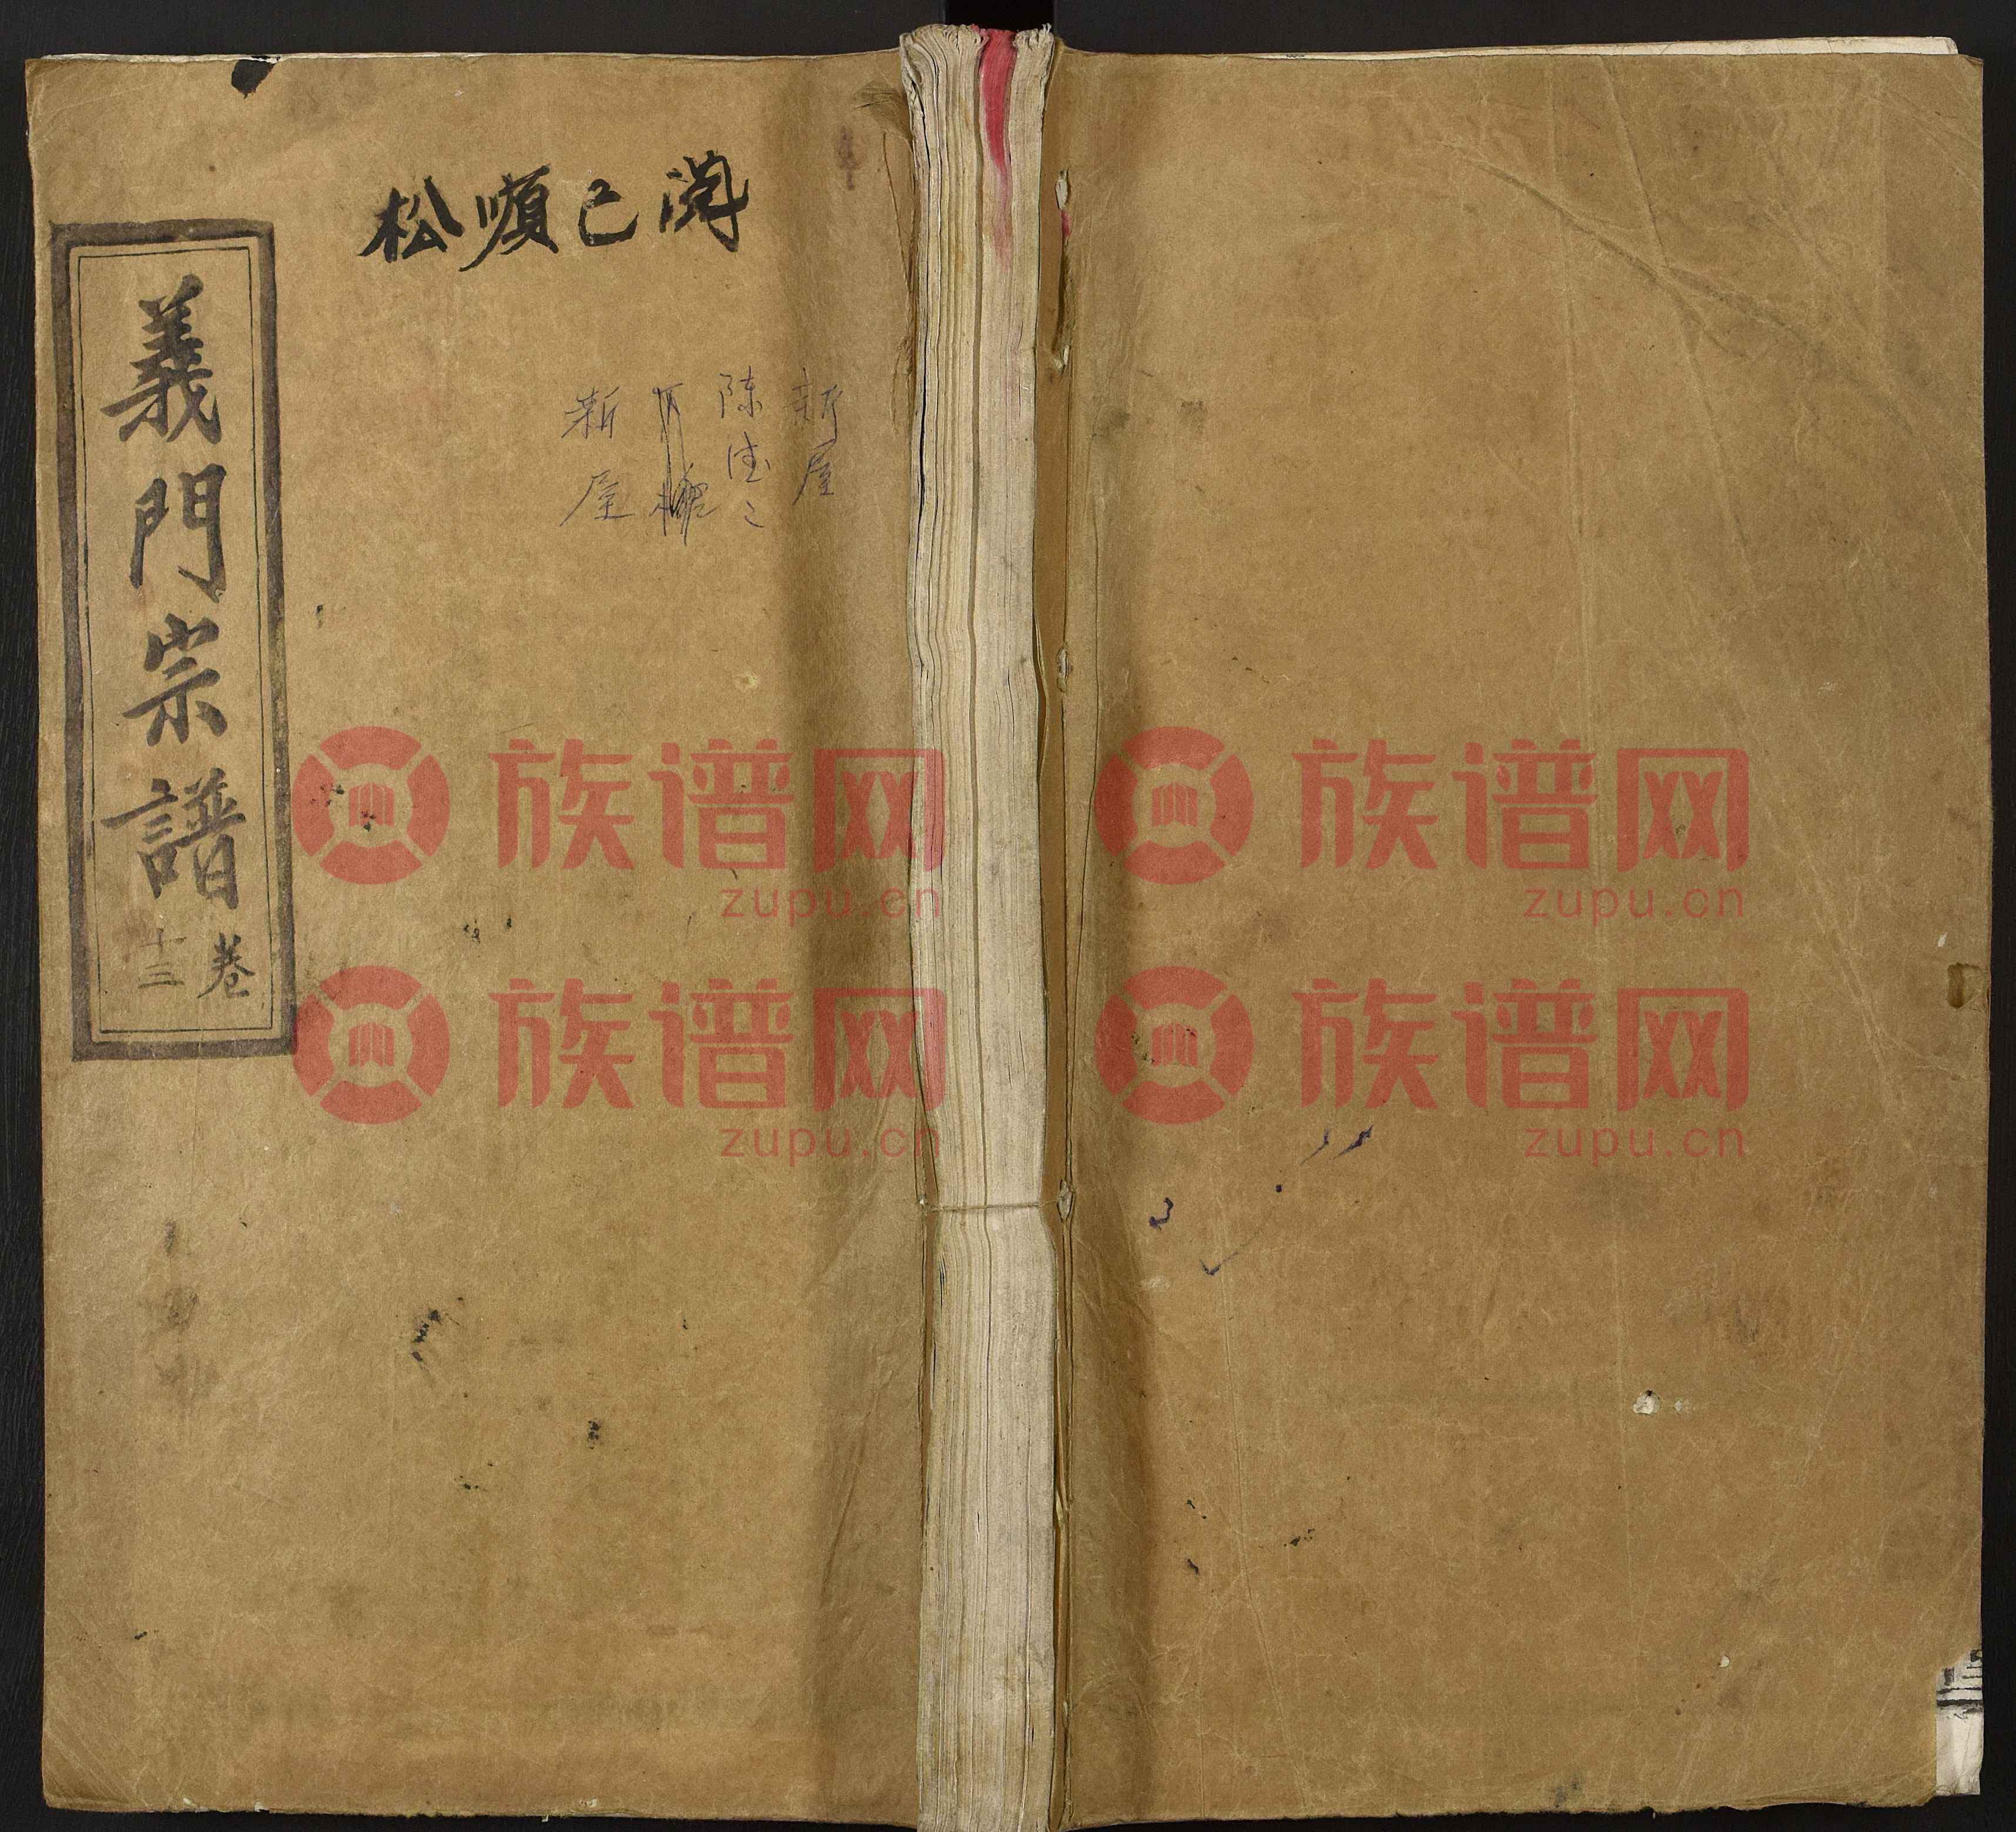 義門宗譜
卷
十三
松順己閲
新屋
陈
新屋
族谱网
zupu.cn
族谱网
zupu.cn
族谱网
zupu.cn
族谱网
zupu.cn